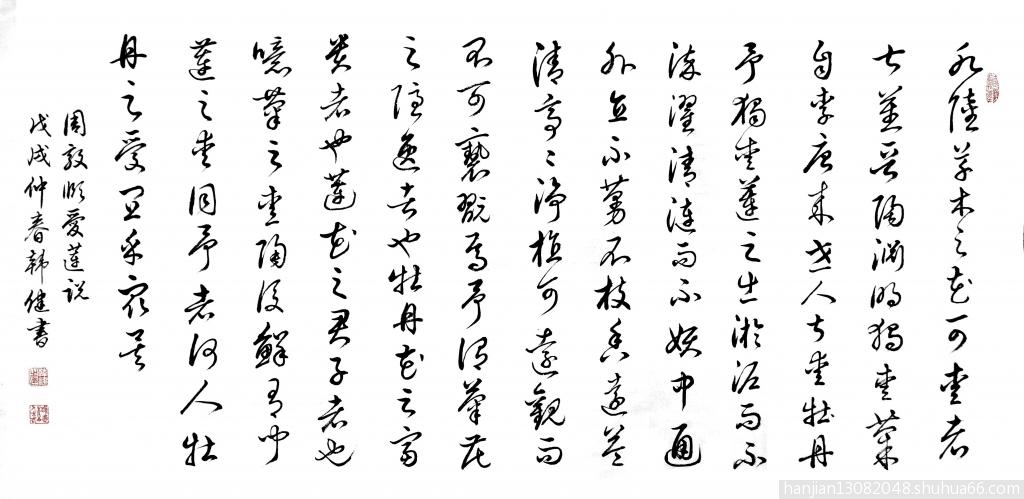 水陸草木之花可愛者
甚蕃晉陶淵明獨愛菊
自李唐來世人甚愛牡丹
予獨愛蓮之出淤泥而不
染濯清漣而不妖中通
外直不蔓不枝香遠益
清亭〻淨植可遠觀而
不可褻翫焉予謂菊花
之隱逸者也牡丹花之富
貴者也蓮花之君子者也
噫菊之愛陶後鮮有聞
蓮之愛同予者何人牡
丹之愛宜乎眾矣
周敦頤愛蓮説
戊戌仲春韓健書
hanjian13082048.shuhua66.com